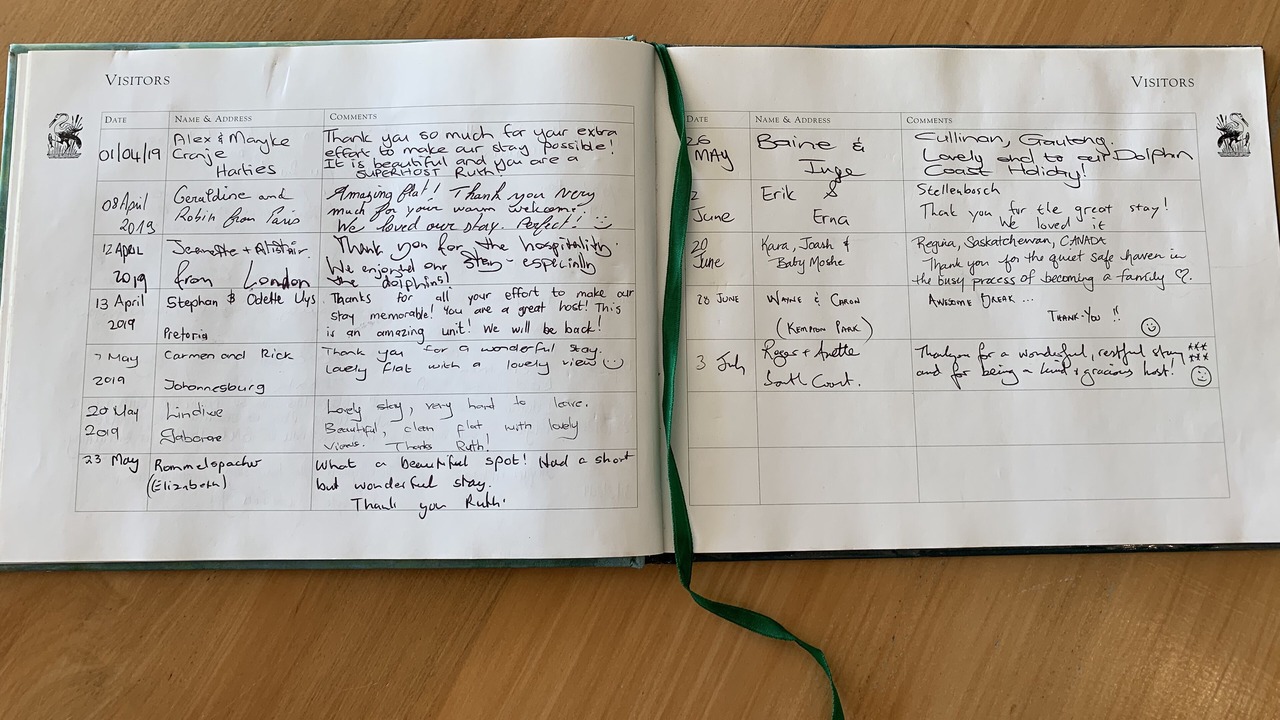 VISITORS
DATE NAME & ADDRESS COMMENTS
01/04/19 Alex & Maryke
Cronje
Harties
Thank you so much for your extra
effort to make our stay possible!
It is beautiful and you are a
SUPERHOST Ruth
08 April
2019
Geraldine and
Robin from Paris
Amazing flat! Thank you very
much for your warm welcome.
We loved our stay. Perfect!
12 April
2019
Jeanette + Alistair.
from London
Thank you for the hospitality.
We enjoyed our stay - especially
the dolphins!
13 April
2019
Stephan & Odette Uys
Pretoria
Thanks for all your effort to make our
stay memorable! You are a great host! This
is an amazing unit! We will be back!
7 May
2019
Carmen and Rick
Johannesburg
Thank you for a wonderful stay.
Lovely flat with a lovely view
20 May
2019
Lindiwe
Gaborone
Lovely stay, very hard to leave.
Beautiful, clean flat with lovely
views. Thanks Ruth!
23 May
Rommelspacher
(Elizabeth)
What a beautiful spot! Had a short
but wonderful stay.
Thank you Ruth.
VISITORS
DATE NAME & ADDRESS COMMENTS
26
MAY
Baine &
Inge
Cullinan, Gauteng.
Lovely end to our Dolphin
Coast Holiday!
2
June
Erik &
Erna
Stellenbosch
Thank you for the great stay!
We loved it
20
June
Kara, Joash &
Baby Moshe
Regina, Saskatchewan, CANADA
Thank you for the quiet safe haven in
the busy process of becoming a family ♡.
28 JUNE
WAYNE & CARON
(KEMPTON PARK)
AWESOME BREAK ...
THANK-YOU !!
3 July
Roger + Anette
South Coast.
Thankyou for a wonderful, restful stay
and for being a kind + gracious host!